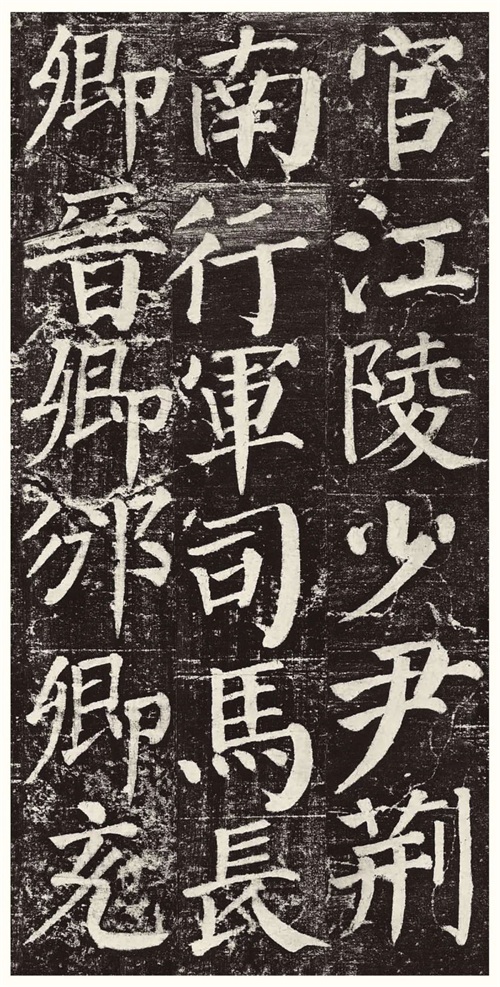 官江陵少尹荆
南行軍司馬長
卿晉卿邠卿充